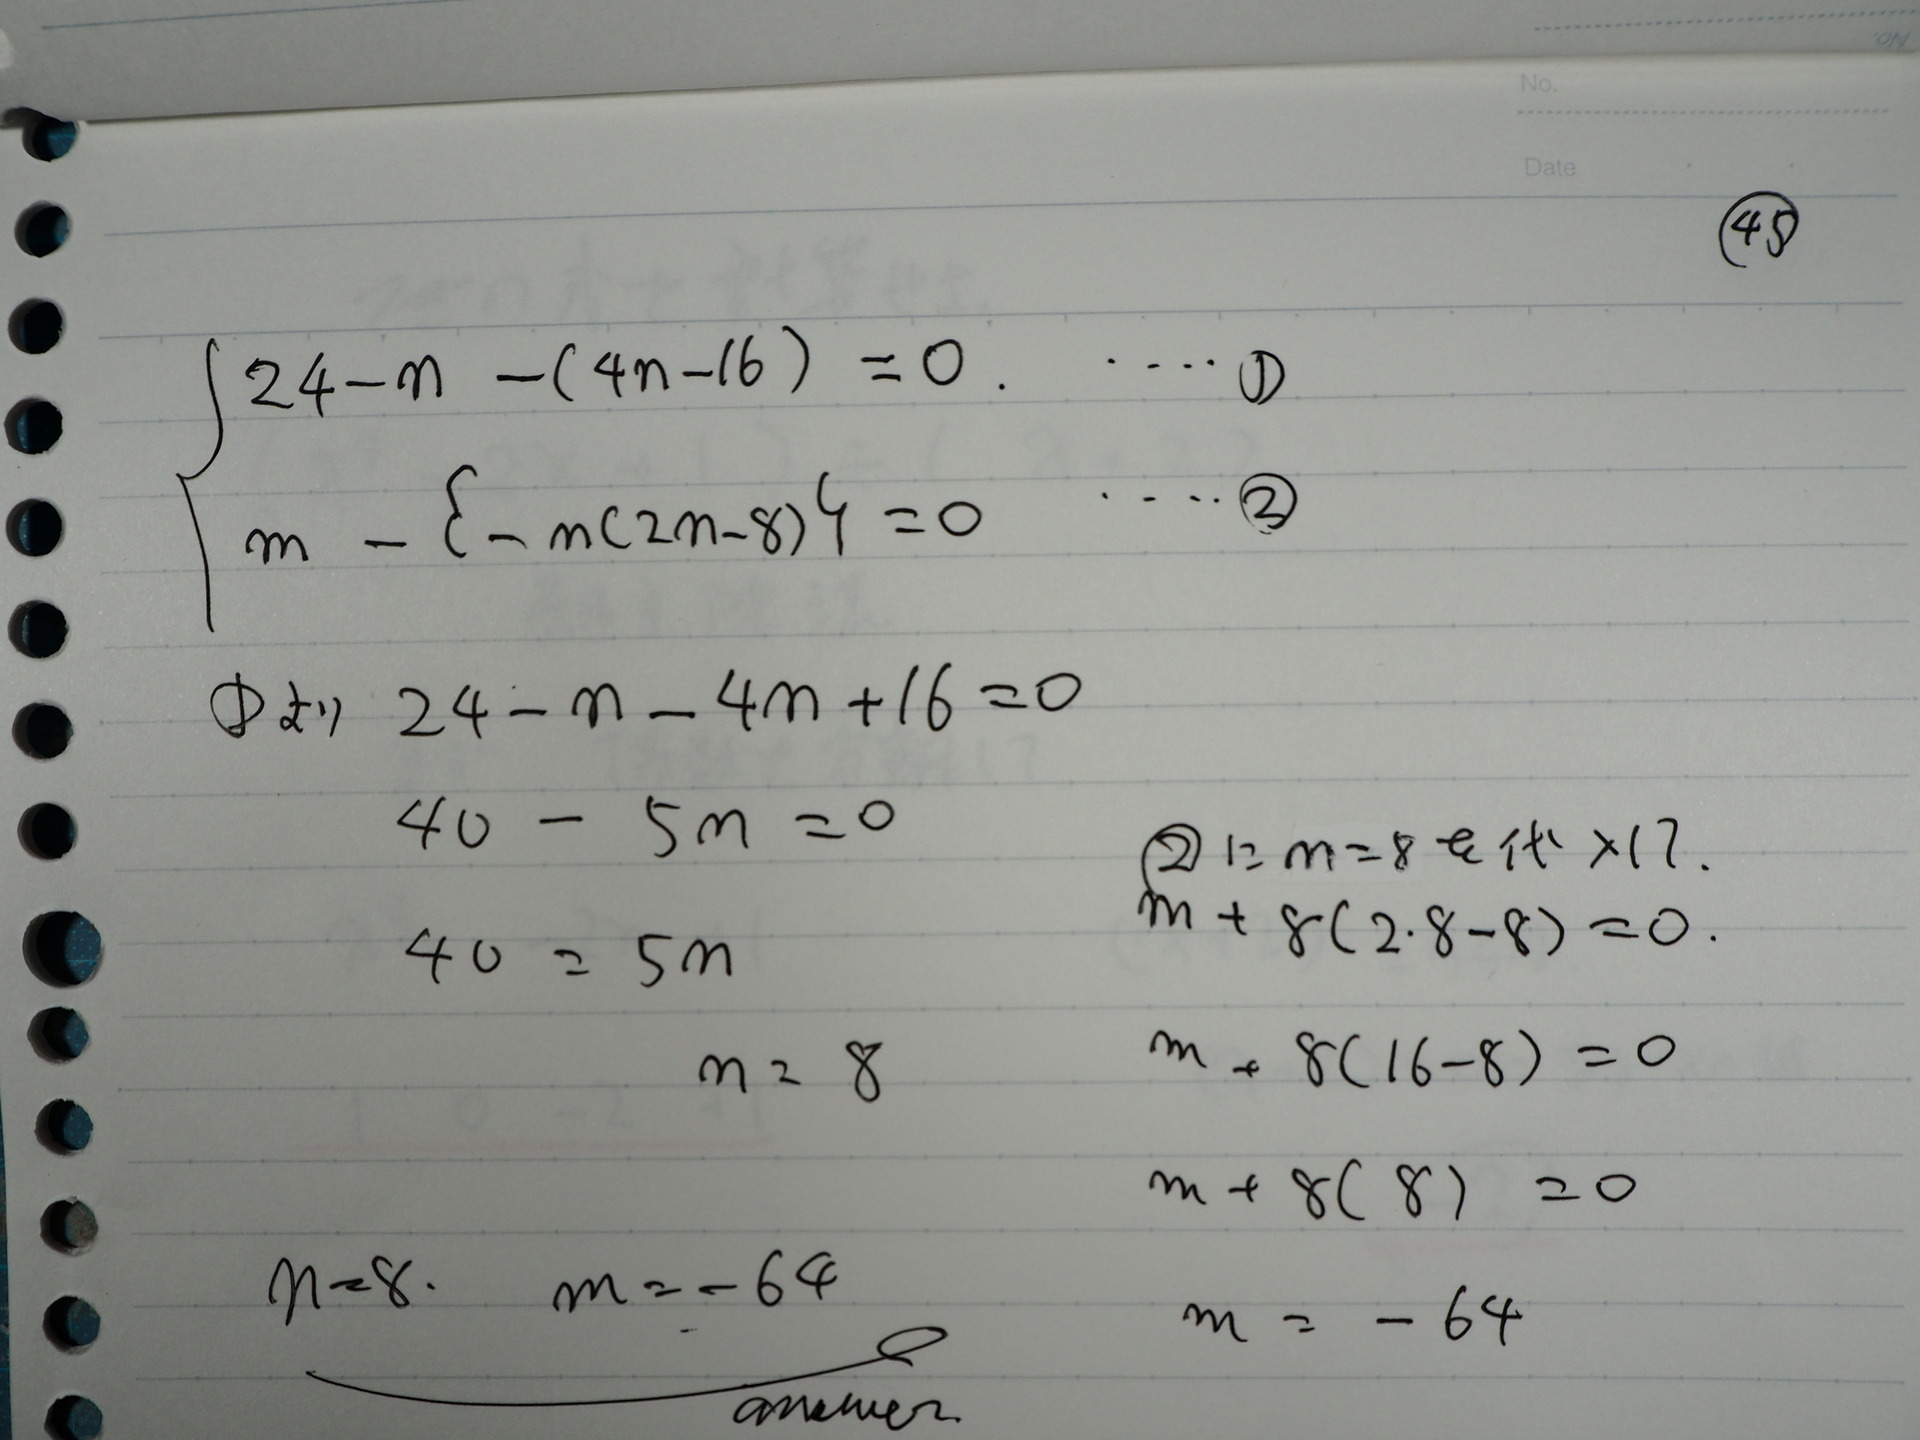 No.
Date
㊺
24-n-(4n-16)=0. ....①
m-{-n(2n-8)}=0 ....②
①より 24-n-4n+16=0
40-5n=0
40=5n
n=8
②に n=8を代入して.
m+8(2·8-8)=0.
m+8(16-8)=0
m+8(8)=0
m=-64
n=8. m=-64
answer